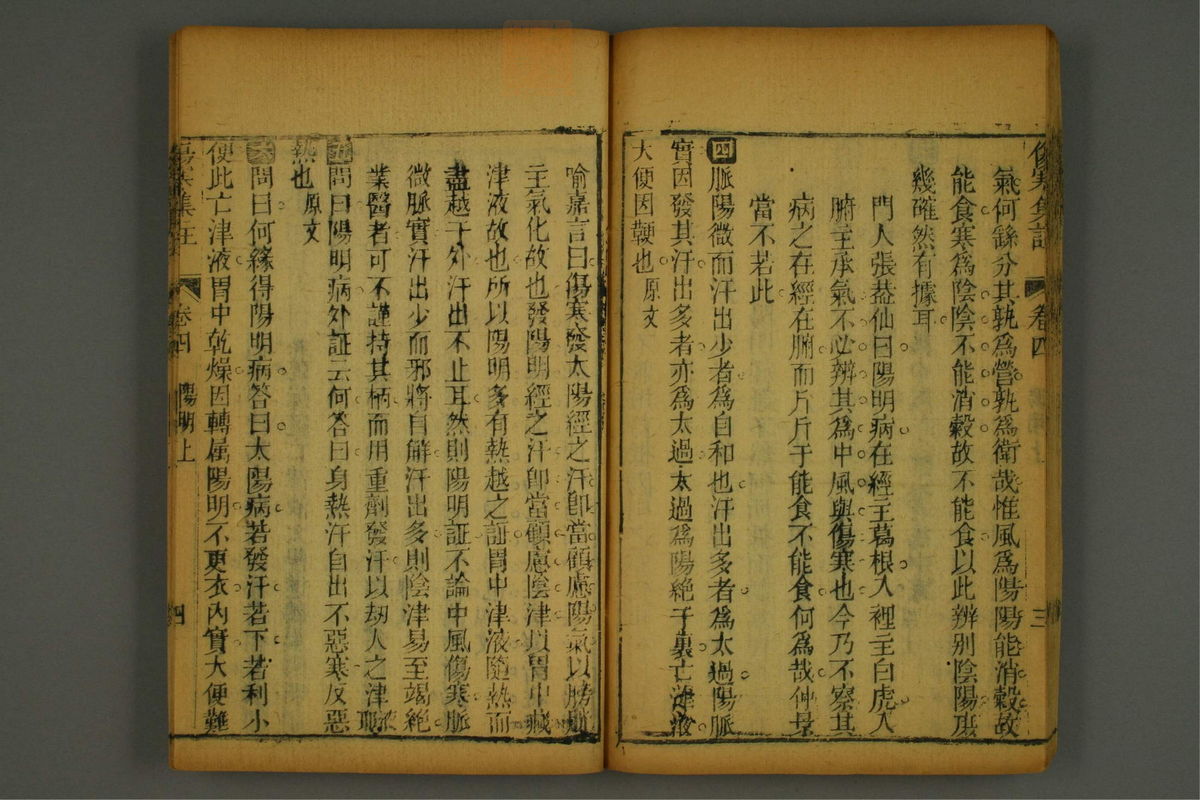 傷寒集註 卷四 三
氣何繇分其孰爲營孰爲衛哉惟風爲陽陽能消穀故
能食寒爲陰陰不能消穀故不能食以此辨别陰陽庶
幾確然有據耳
門人張葢仙曰陽明病在經主葛根入裡主白虎入
腑主承氣不必辨其爲中風與傷寒也今乃不察其
病之在經在腑而斤斤于能食不能食何爲哉仲景
當不若此
四 脈陽微而汗出少者爲自和也汗出多者爲太過陽脈
實因發其汗出多者亦爲太過太過爲陽絶于裏亡津液
大便因鞕也 原文
喻嘉言曰傷寒發太陽經之汗卽當顧慮陽氣以膀胱
主氣化故也發陽明經之汗卽當顧慮陰津以胃中藏
津液故也所以陽明多有熱越之証胃中津液隨熱而
盡越于外汗出不止耳然則陽明証不論中風傷寒脈
微脈實汗出少而邪將自解汗出多則陰津易至竭絶
業醫者可不謹持其柄而用重劑發汗以刼人之津液耶
五 問曰陽明病外証云何答曰身熱汗自出不惡寒反惡
熱也 原文
六 問曰何緣得陽明病答曰太陽病若發汗若下若利小
便此亡津液胃中乾燥因轉属陽明不更衣内實大便難
傷寒集註 卷四 陽明上 四